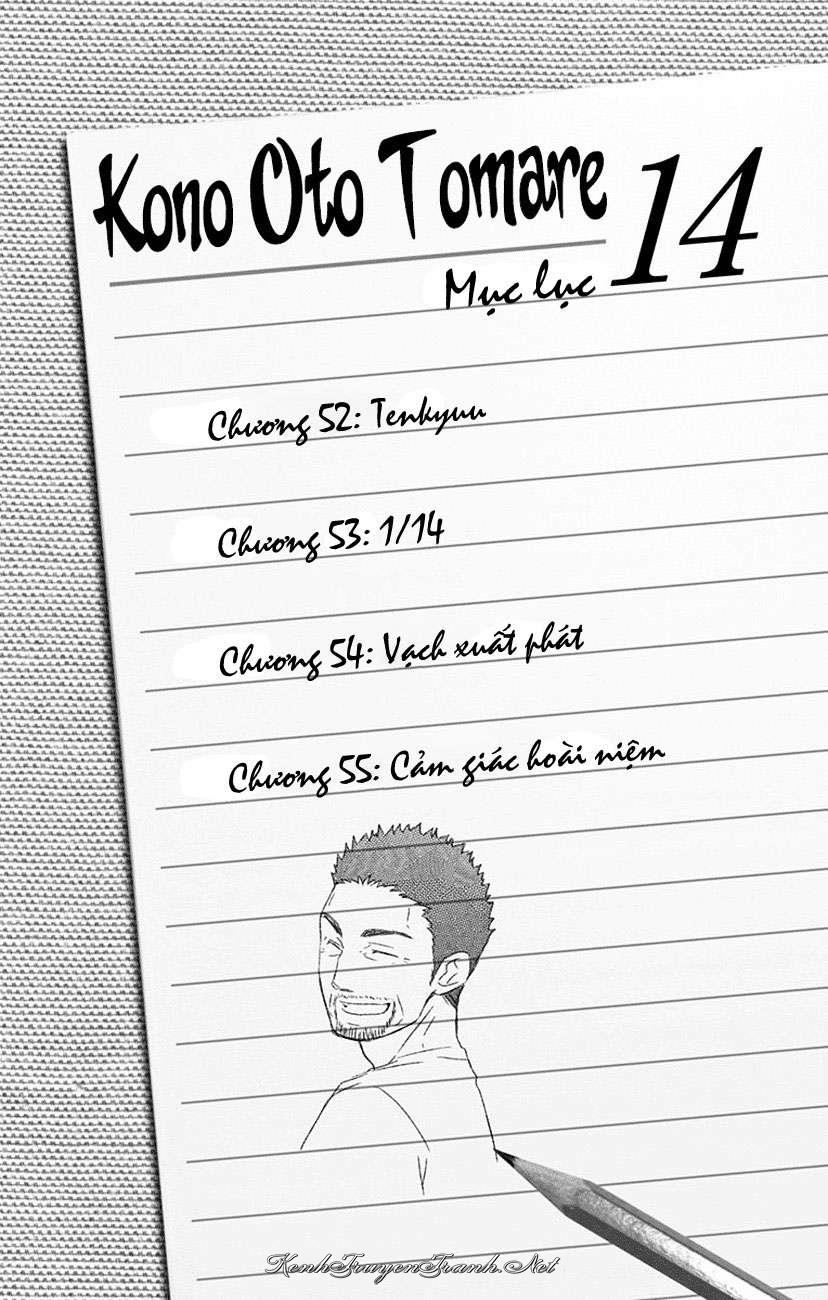 Kono Oto Tomare 14
Mục lục
Chương 52: Tenkyuu
Chương 53: 1/14
Chương 54: Vạch xuất phát
Chương 55: Cảm giác hoài niệm
KenhTruyenTranh.Net